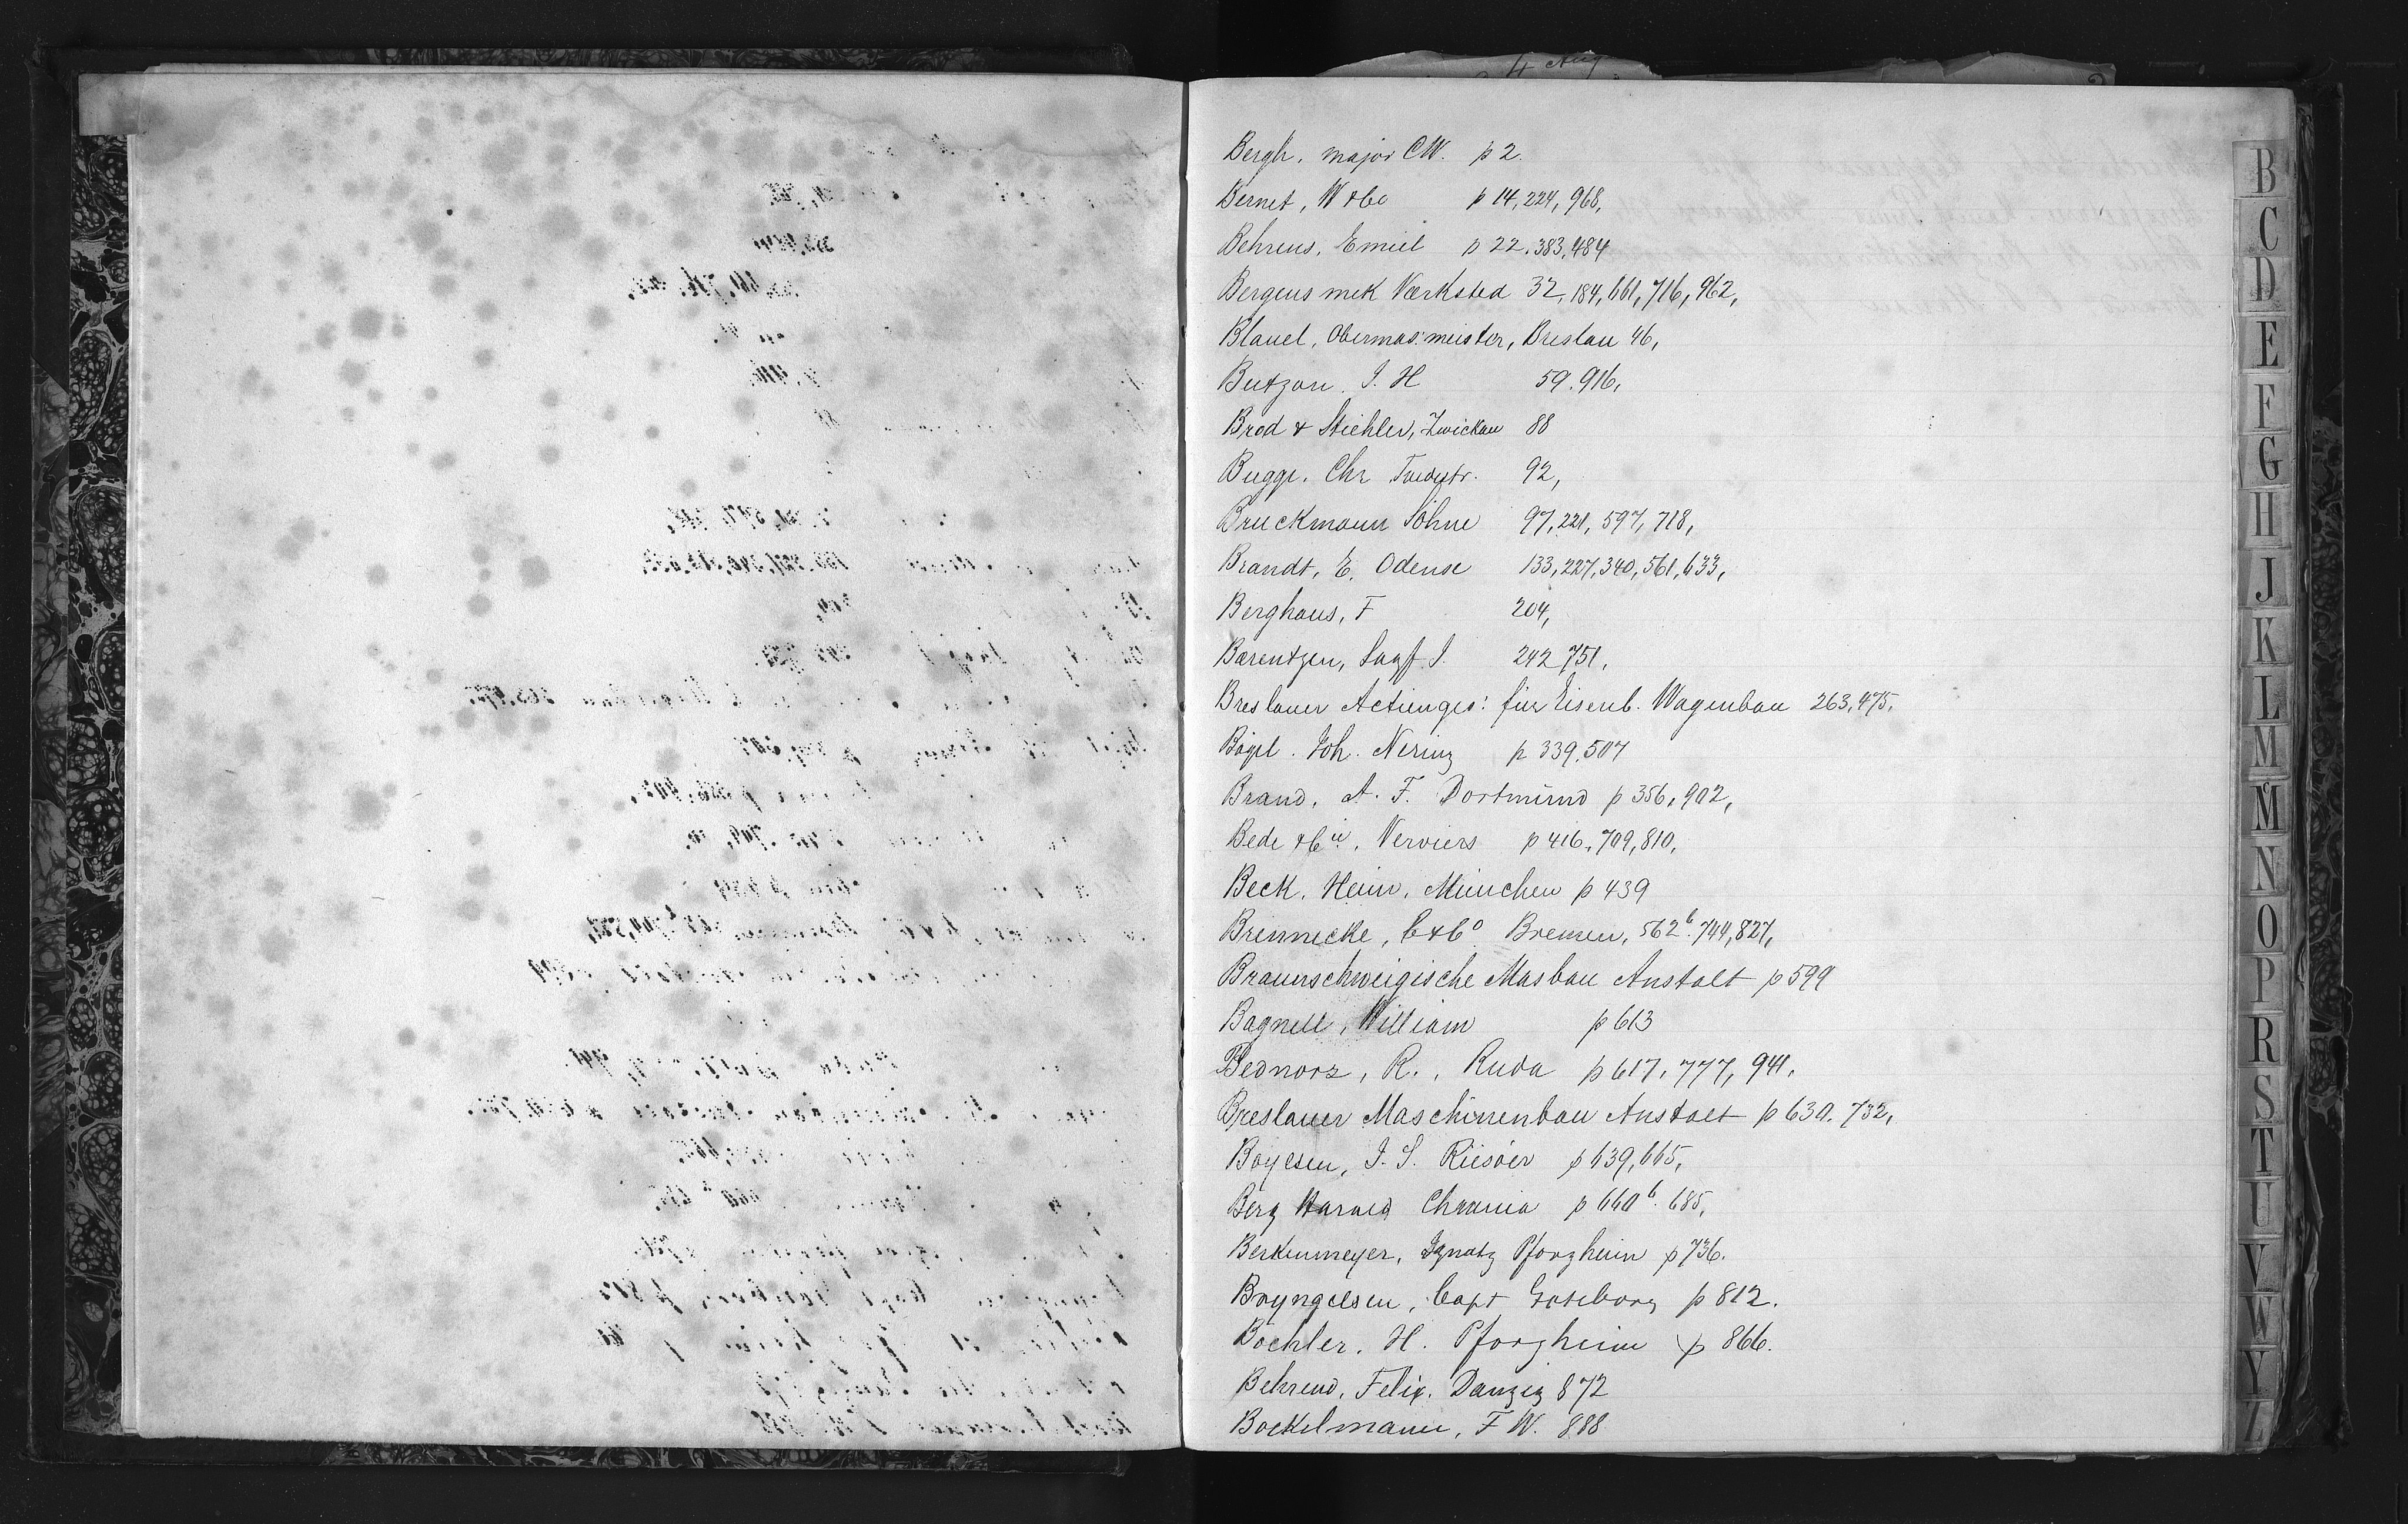 4 Aug
Bergh, major CW. p 2.
Bernet, W & Co p 14, 224, 968,
Behrens, Emiel p 22. 383, 484
Bergens mek Værksted 32, 184, 661, 716, 962,
Blauel, Obermas:meister, Breslau 46,
Butzon J. H 59. 916,
Brod & Stiehler, Zwickau 88
Bugge. Chr 92,
Bruckmann Söhne 97, 221, 597, 718,
Brandt, E. Odense 133, 227, 340, 561, 633,
Berghaus, F 204,
Barentzen, Sagf. J. 242 751,
Breslauer Actienges: für Eisenb. Wagenbau 263, 475,
Bögel. Joh. p 339. 507
Brand, A. F. Dortmund p 356, 902,
Bede & Cie, Verviers p 416, 709, 810,
Beck, Heinr, München p 439
Brennecke, C & Co Bremen, 562b. 744, 827,
Braunschweigische Masbau Anstalt p 599
Bagnell, William p 613
Bednorz, R., Ruda p 617, 777, 941,
Breslauer Maschinenbau Anstalt p 630. 732,
Boyesen, J. S. Riisöer p 639, 665,
Berg Harald Chrania p 660b. 685,
Berkenmeyer, Ignatz Pforzheim p 736.
Bryngelsen, Capt Goteborg p 812.
Boehler, H. Pforzheim p 866.
Behrend, Felix. Danzig 872
Bockelmann, F W. 888
B
C
D
E
F
G
H
J
K
L
M
Mc
N
O
P
R
S
T
U
V
W
Y
Z